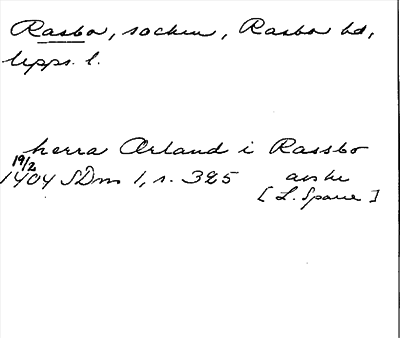 Rasbo, socken, Rasbo hd,
Upps. l.
herra Ærland i Rassbo
19/2
1404 SDm 1, s. 325 avskr
[L. Sparre]